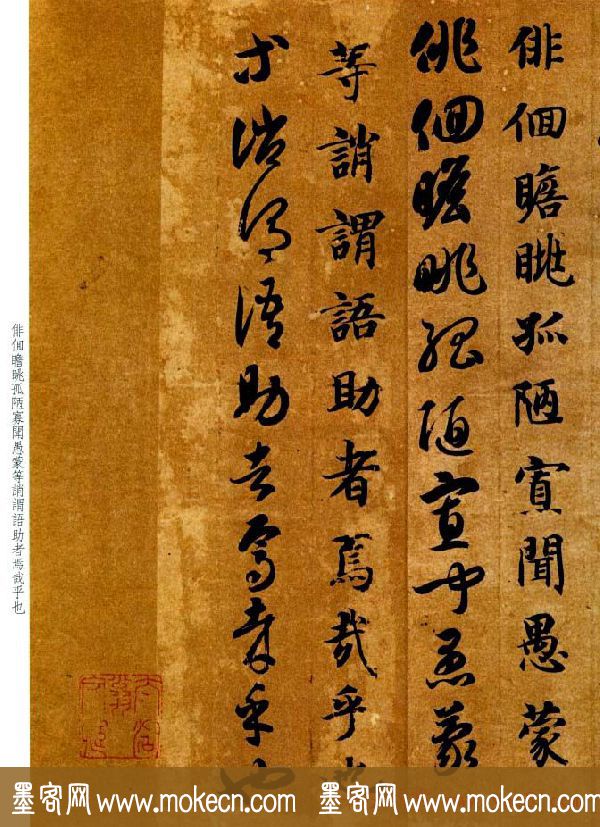 俳佪瞻眺孤陋寡聞愚蒙
俳佪瞻眺孤陋寡聞愚蒙
等誚謂語助者焉哉乎也
等誚謂語助者焉哉乎也
俳佪瞻眺孤陋寡聞愚蒙等誚謂語助者焉哉乎也
墨客网 www.mokecn.com 墨客网 www.mokecn.com